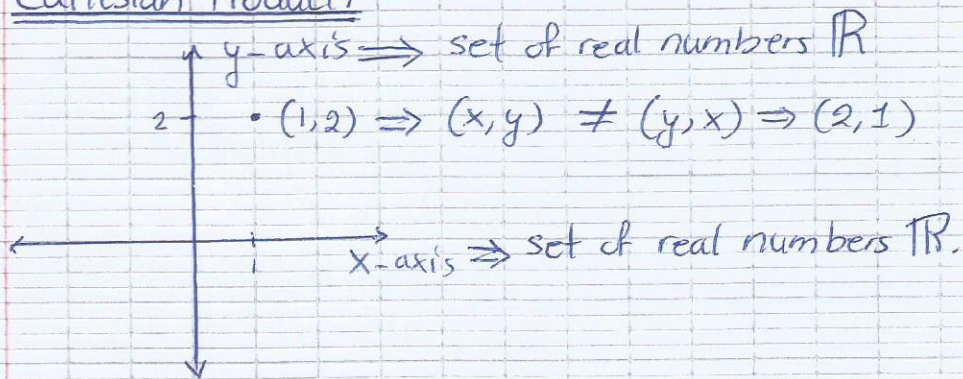 Cartesian Product:
y-axis ⇒ set of real numbers ℝ
2 • (1,2) ⇒ (x,y) ≠ (y,x) ⇒ (2,1)
x-axis ⇒ set of real numbers ℝ.
1